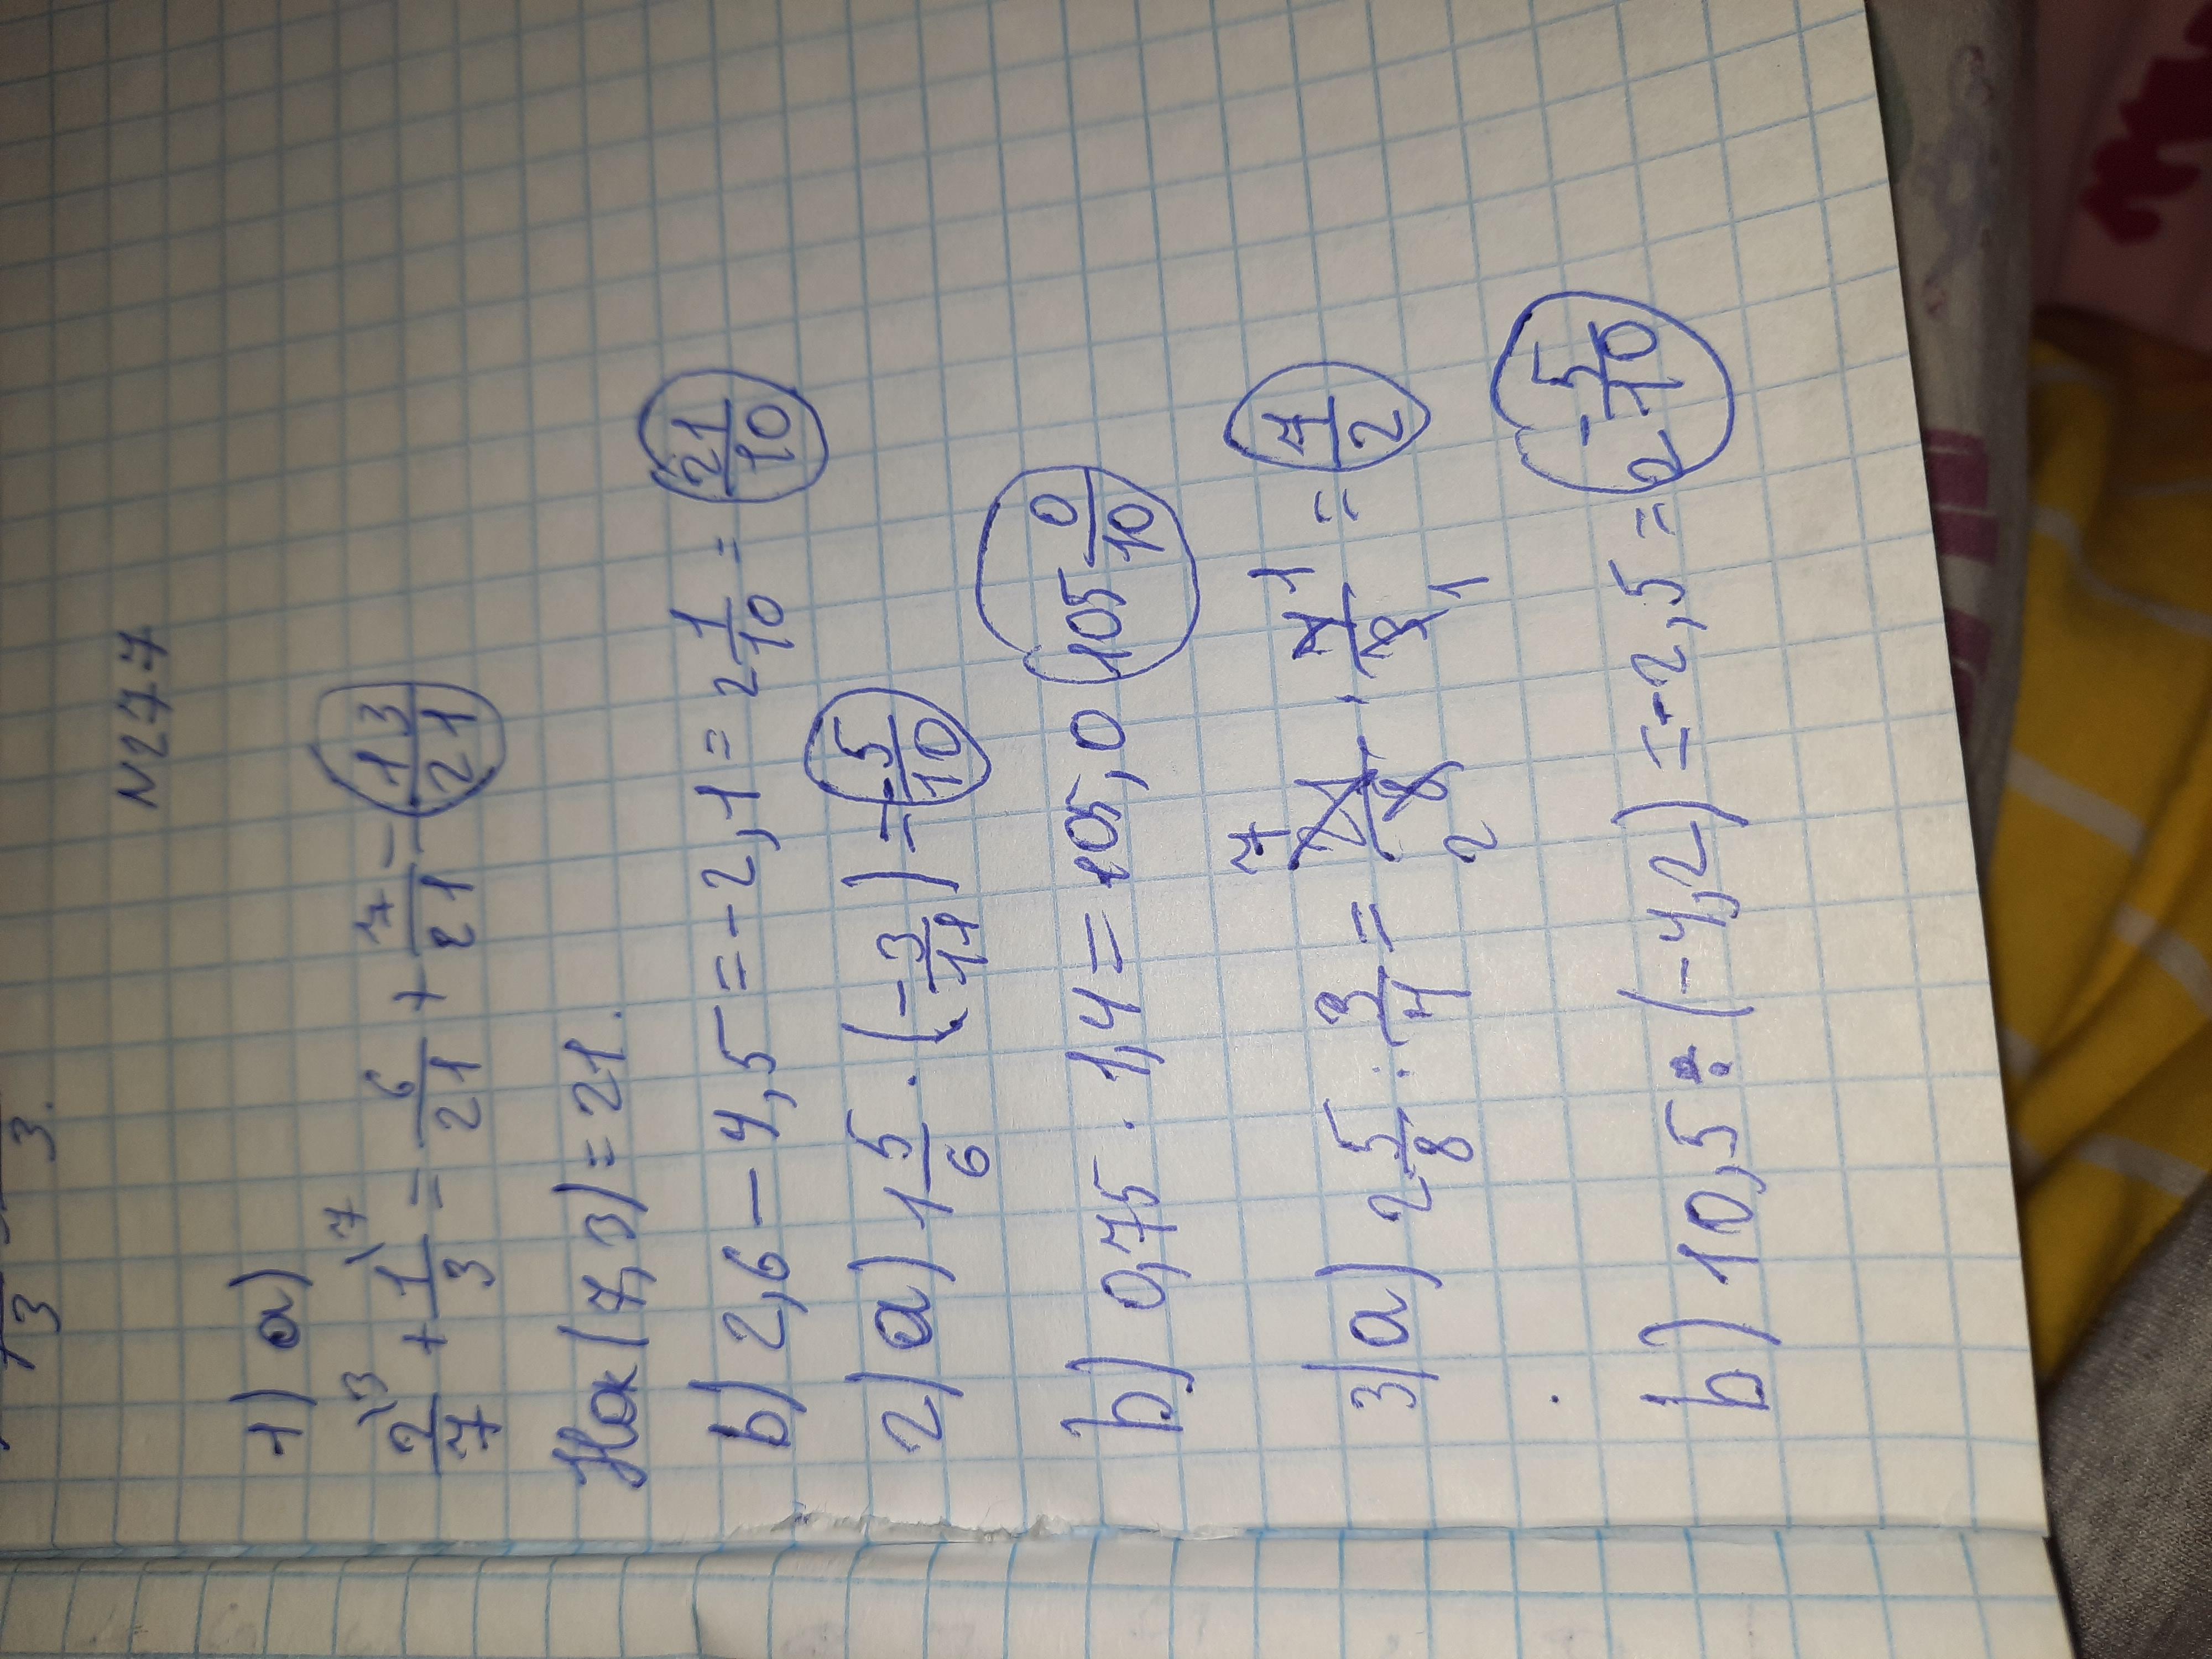 3 3.
N277
1) a)
2/7 \3 + 1/3 \7 = 6/21 + 7/21 = 13/21
Нок (7,3) = 21.
b) 2,6 - 4,5 = -2,1 = 2 1/10 = 21/10
2) a) 1 5/6 · (-3/11) = -5/10
b) 0,75 · 1,4 = 105,0 105 0/10
3) a) 2 5/8 : 3/4 = 7 21/8 2 · 4/3 1 1 = 7/2
b) 10,5 : (-4,2) = -2,5 = 2 -5/10